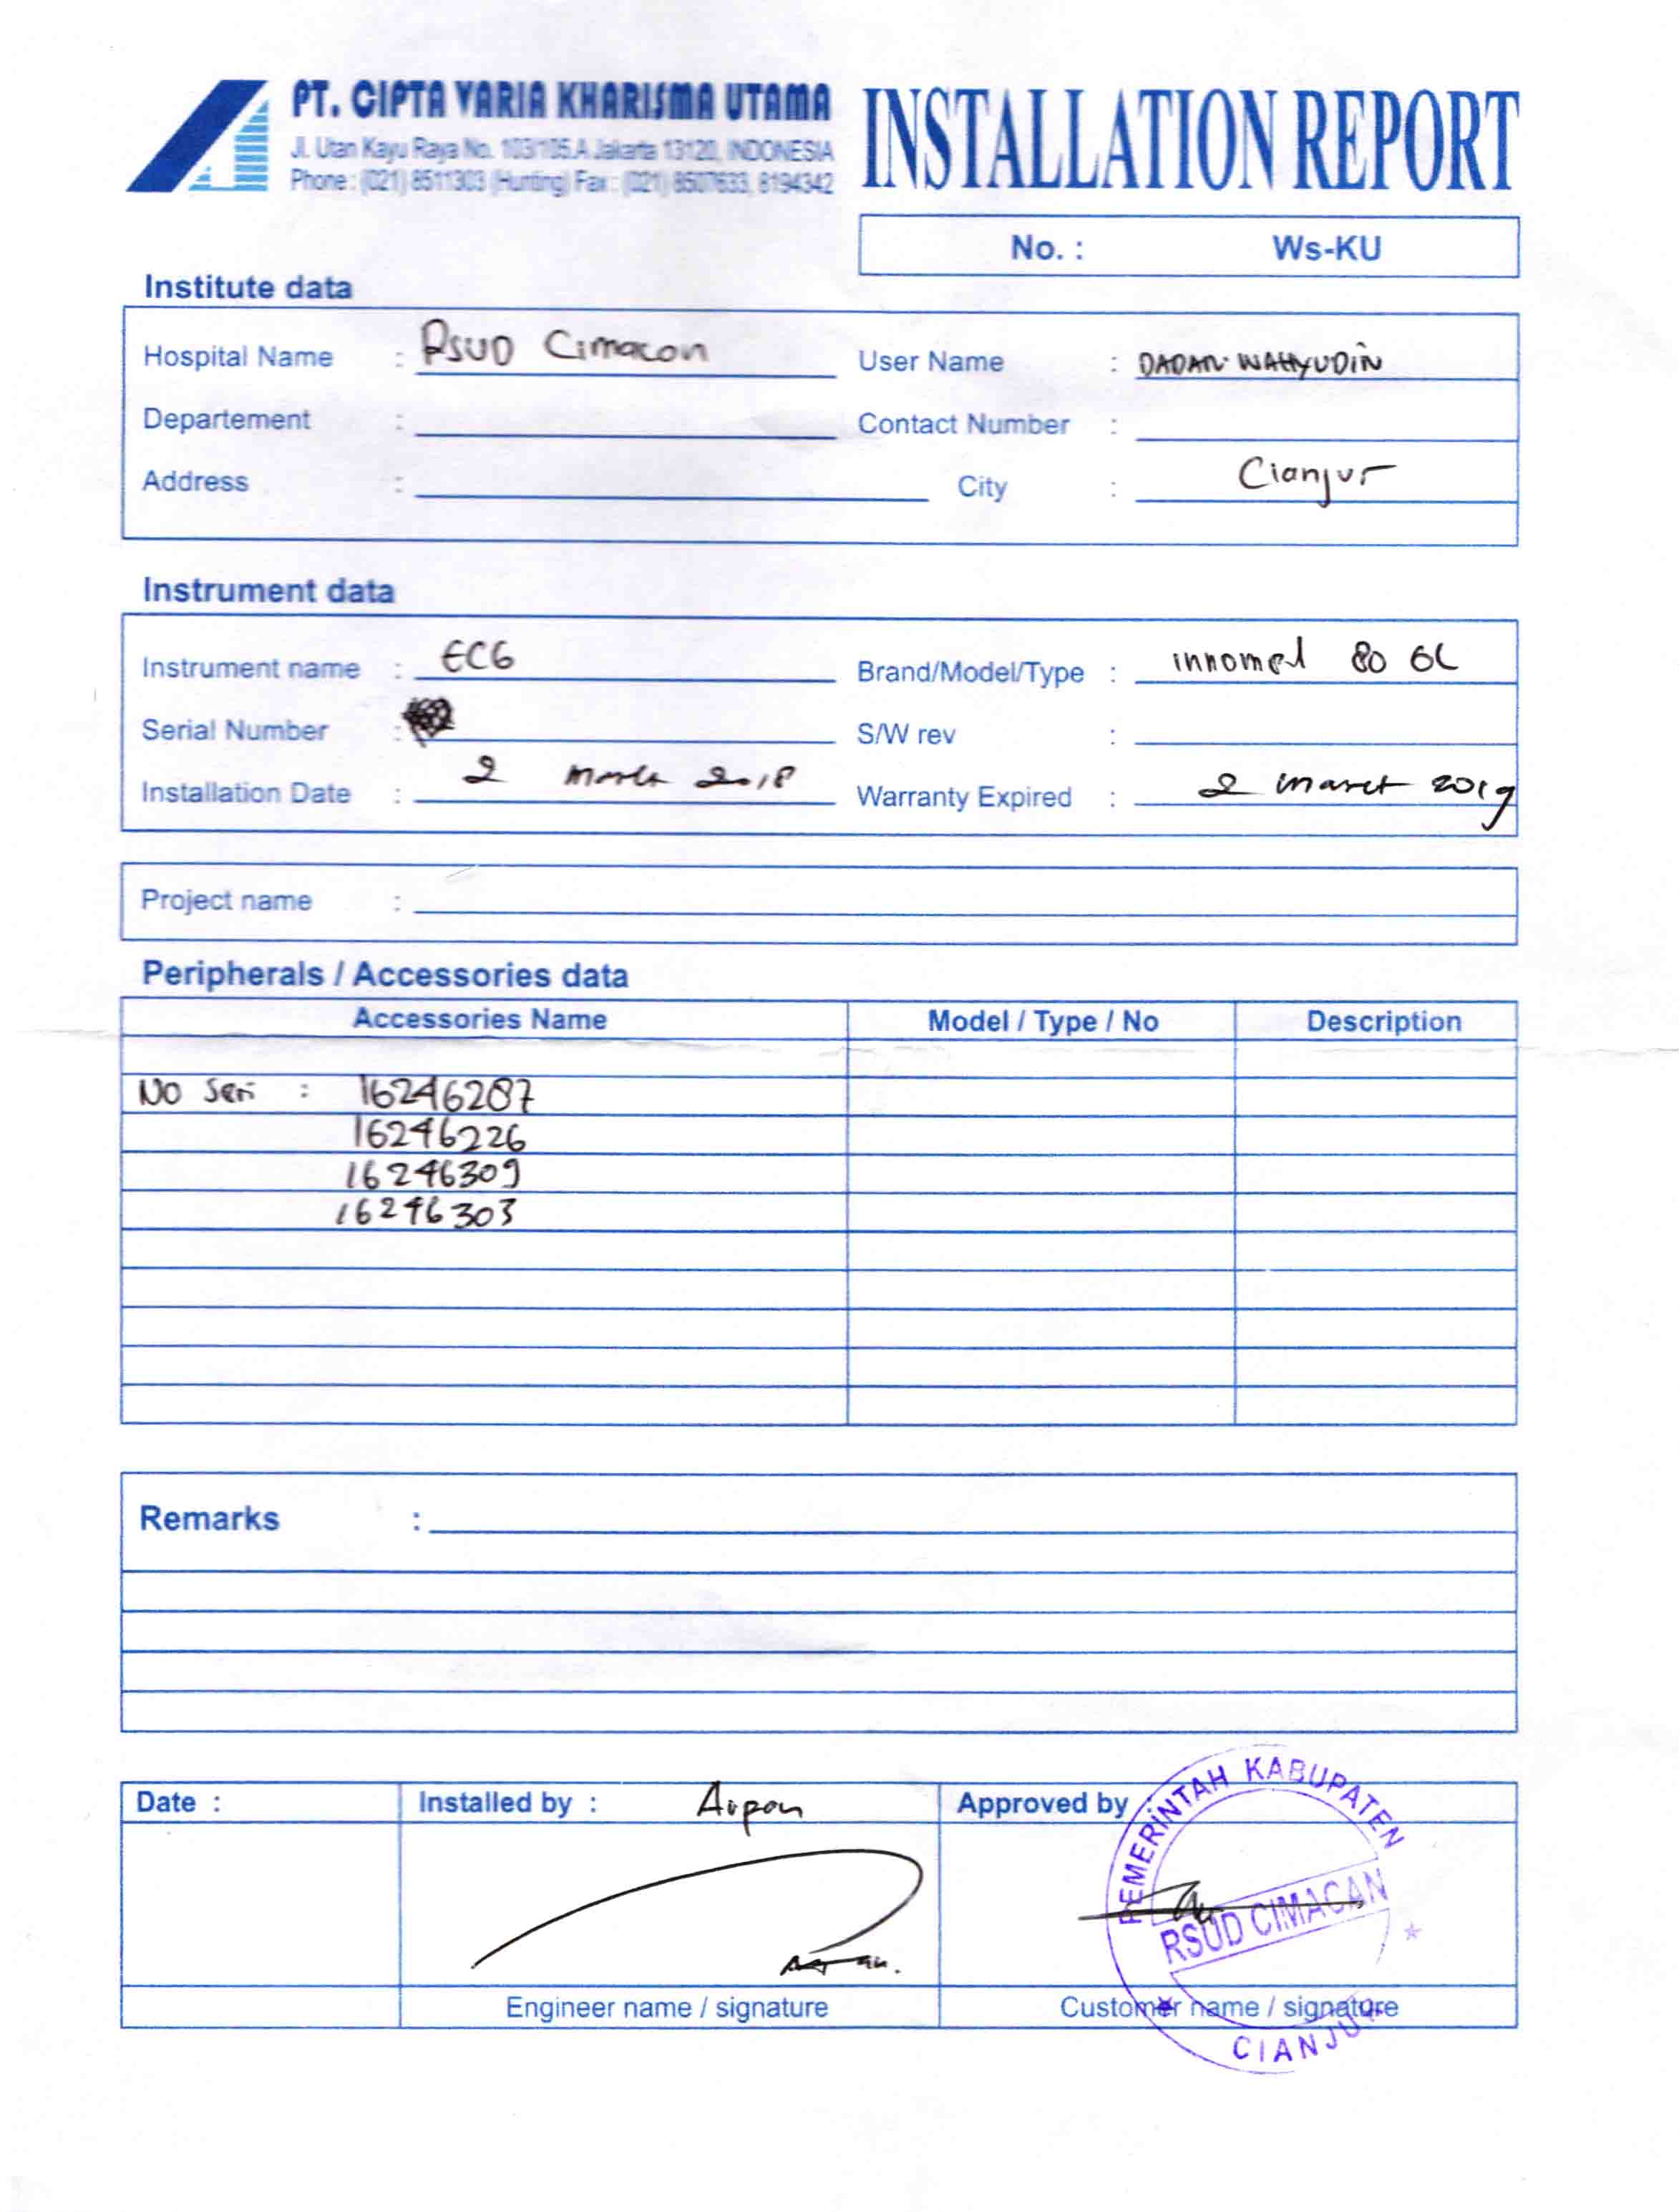 PT. CIPTA VARIA KHARISMA UTAMA
Jl. Utan Kayu Raya No. 103/105.A Jakarta 13120, INDONESIA
Phone : (021) 8511303 (Hunting) Fax : (021) 8507633, 8194342
INSTALLATION REPORT
No. : Ws-KU
Institute data
Hospital Name : RSUD Cimacan User Name : DADAN WAHYUDIN
Departement : Contact Number :
Address : City : Cianjur
Instrument data
Instrument name : ECG Brand/Model/Type : innomed 80 6L
Serial Number : S/W rev :
Installation Date : 2 2018 Warranty Expired : 2 maret 2019
Project name :
Peripherals / Accessories data
Accessories Name Model / Type / No Description
No Seri : 16246287
16246226
16246309
16246303
Remarks :
Date : Installed by : Arpan Approved by :
PEMERINTAH KABUPATEN
RSUD CIMACAN
Engineer name / signature Customer name / signature
CIANJUR